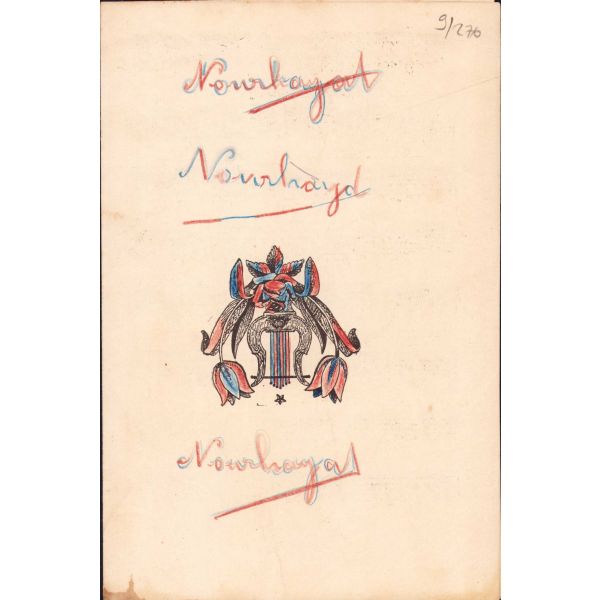 9/276
Nourhayat
Nourhayd
Nourhayat